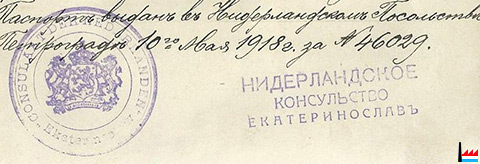 Паспортъ выданъ въ Нидерландскомъ Посольствѣ
Петроградъ, 10го Мая 1918 г., за № 46029.
НИДЕРЛАНДСКОЕ
КОНСУЛЬСТВО
ЕКАТЕРИНОСЛАВЪ